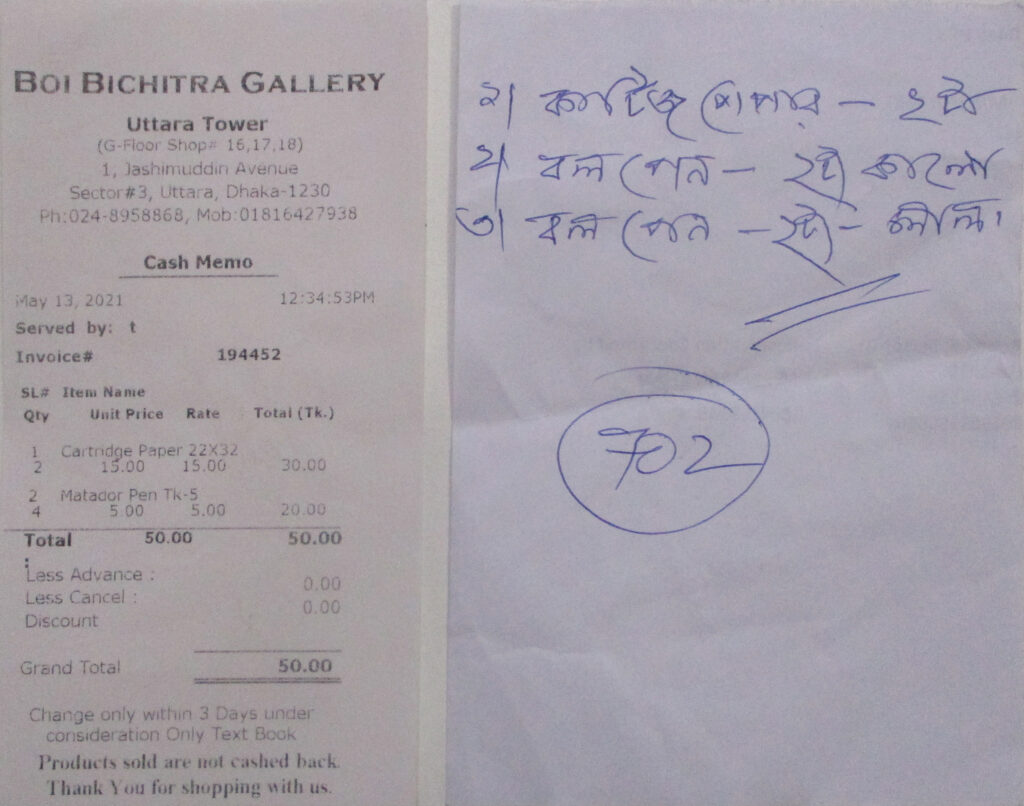 BOI BICHITRA GALLERY
Uttara Tower
(G-Floor Shop# 16,17,18)
1, Jashimuddin Avenue
Sector#3, Uttara, Dhaka-1230
Ph:024-8958868, Mob:01816427938
Cash Memo
May 13, 2021 12:34:53PM
Served by: t
Invoice# 194452
SL# Item Name
Qty Unit Price Rate Total (Tk.)
1 Cartridge Paper 22X32
2 15.00 15.00 30.00
2 Matador Pen Tk-5
4 5.00 5.00 20.00
Total 50.00 50.00
Less Advance : 0.00
Less Cancel : 0.00
Discount
Grand Total 50.00
Change only within 3 Days under
consideration Only Text Book
Products sold are not cashed back.
Thank You for shopping with us.
১| কার্টিজ পেপার - ২টা
২| বল পেন - ২টা কালো
৩| বল পেন - ২টা - নীল।
702